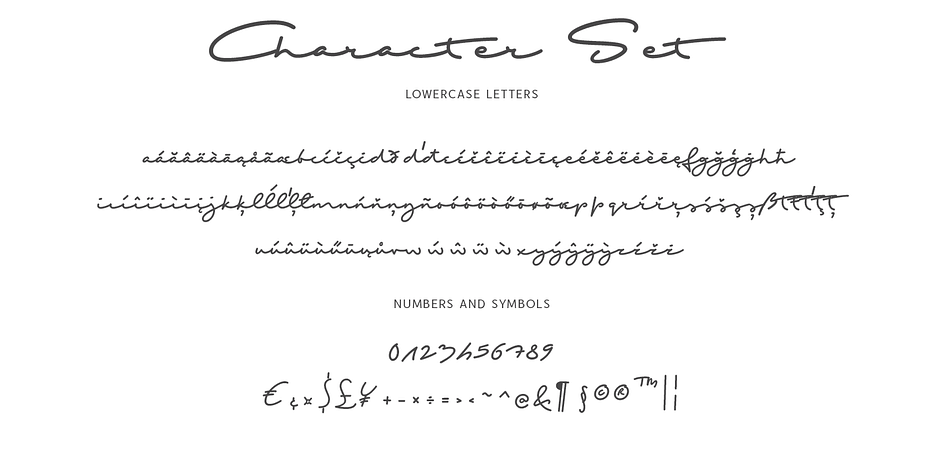 Character Set
LOWERCASE LETTERS
aáăâäàāąåãæbcćčçċdðďđeéěêëėèēęfgğģġhħ
iıíîïìīįjkķlĺľļłmnńňņŋñoóôöòőōøõœpþqrŕřŗsśšşșßtŧťţț
uúûüùűūųůvwẃŵẅẁxyýŷÿỳzźžż
NUMBERS AND SYMBOLS
0123456789
€¢¤$£¥+−×÷=><~^@&¶§©®™|¦